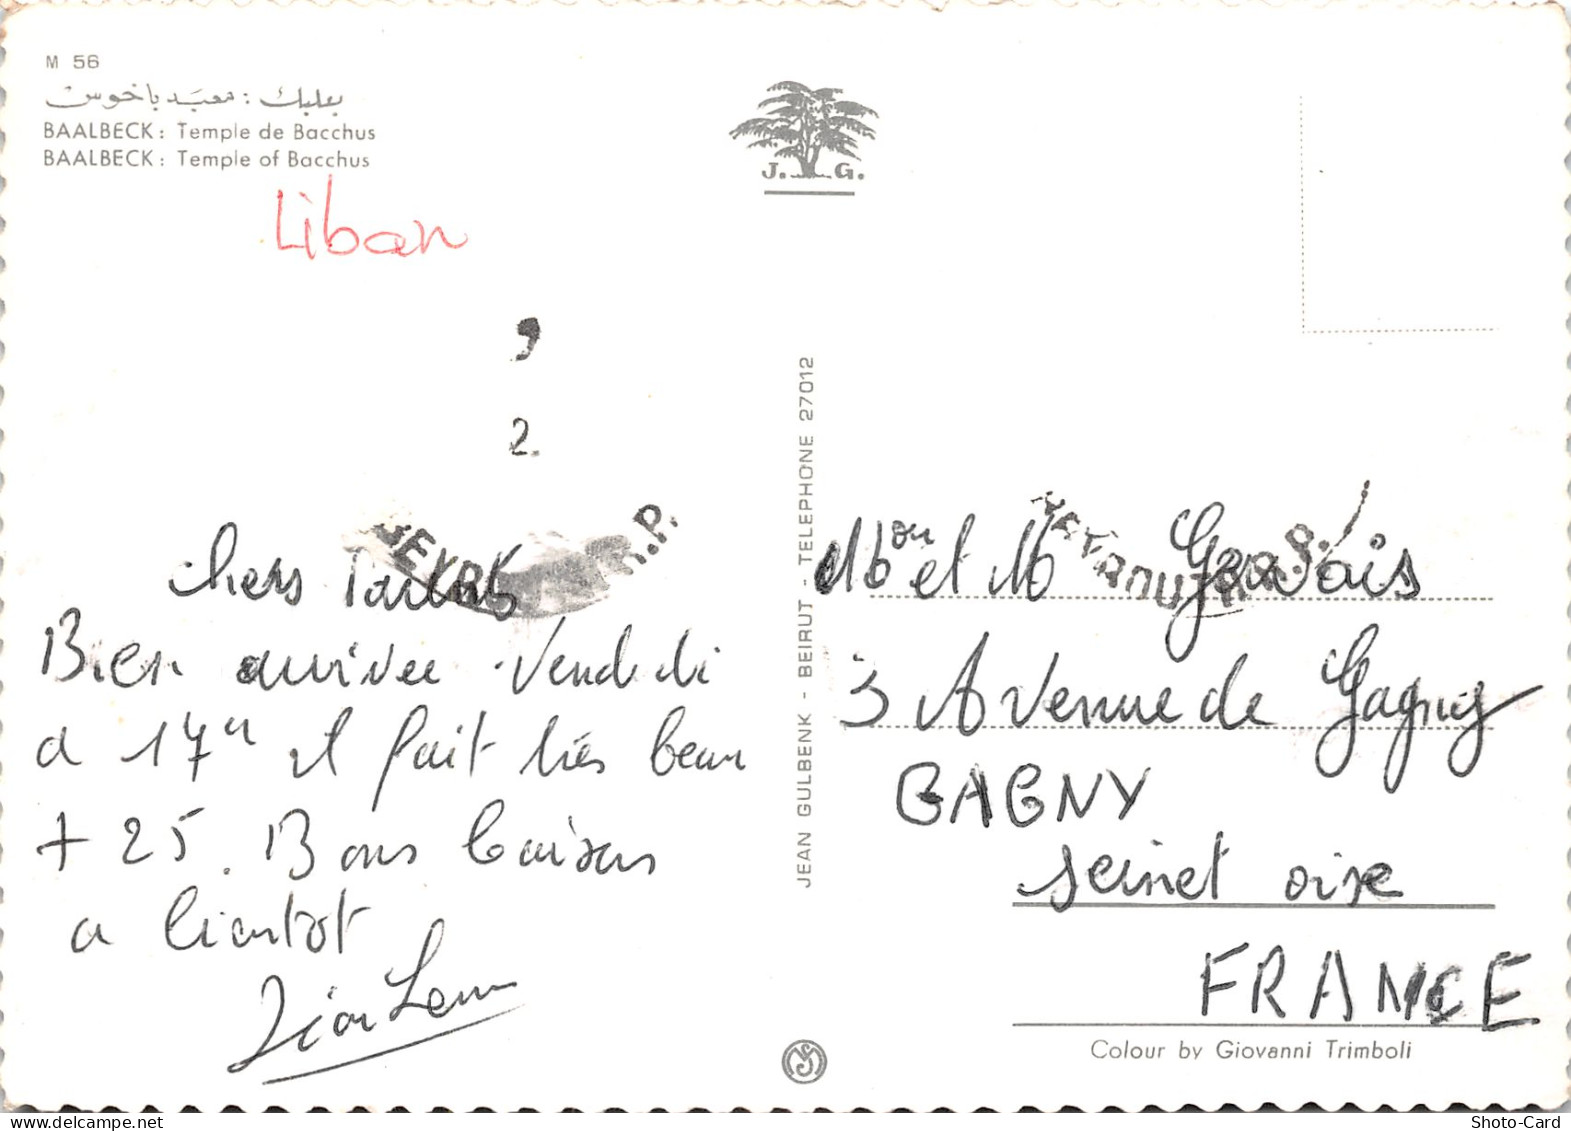 M 56
بعلبك : معبد باخوس
BAALBECK : Temple de Bacchus
BAALBECK : Temple of Bacchus
Liban
J. G.
9
2.
R.P.
chers
Bien arrivée Vendredi
a 17H il fait très beau
+ 25. Bons baisers
a bientot
JEAN GULBENK - BEIRUT - TELEPHONE 27012
et M Gervais
3 Avenue de Gagny
GAGNY
seinet oise
FRANCE
Colour by Giovanni Trimboli
Shoto-Card